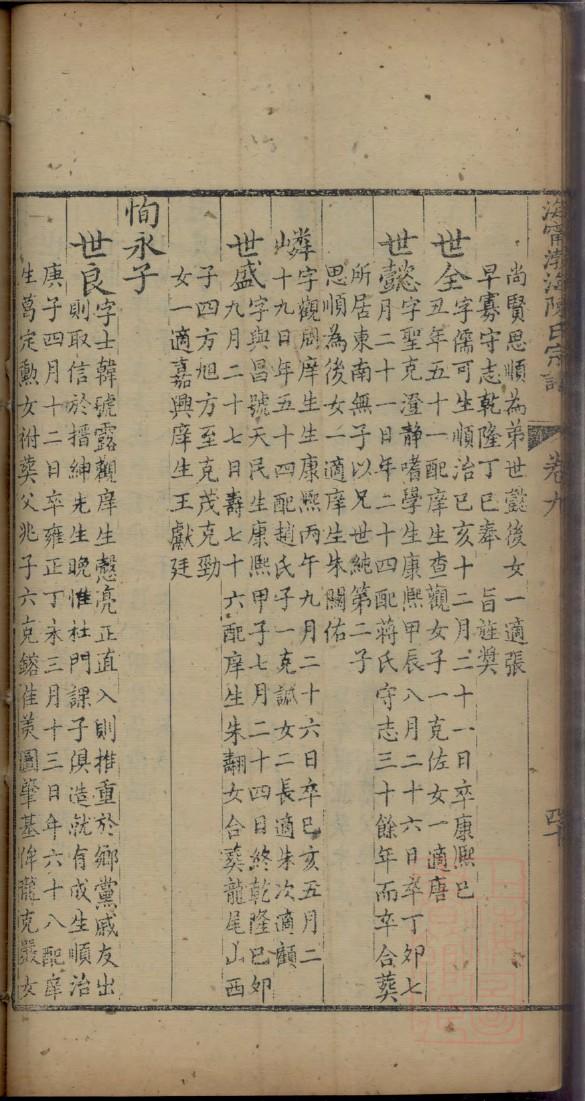 海寧渤海陳氏宗譜
卷九
尚賢思順為弟世懿後女一適張
早寡守志乾隆丁巳奉 旨旌獎
世全字儒可生順治己亥十二月二十一日卒康熙己
丑年五十一配庠生查觀女子一克佐女一適唐
世懿字聖克澄静嗜學生康熙甲辰八月二十六日卒丁卯七
月二十一日年二十四配蔣氏守志三十餘年而卒合葬
所居東南無子以兄世純第二子
思順為後女一適庠生朱關佑
嶙字觀周庠生生康熙丙午九月二十六日卒己亥五月二
十九日年五十四配趙氏子一克諴女二長適朱次適顧
世盛字與昌號天民生康熙甲子七月二十四日終乾隆己卯
九月二十七日壽七十六配庠生朱翿女合葬龍尾山西
子四方旭方至克茂克勁
女一適嘉興庠生王獻廷
恂永子
世良字士韓號露觀庠生慤亮正直入則推重於鄉黨戚友出
則取信於搢紳先生晚惟杜門課子俱造就有成生順治
庚子四月十二日卒雍正丁未三月十三日年六十八配庠
生萬定勳女祔葵父兆子六克鎔佳美圖肇基侔龍克嚴女